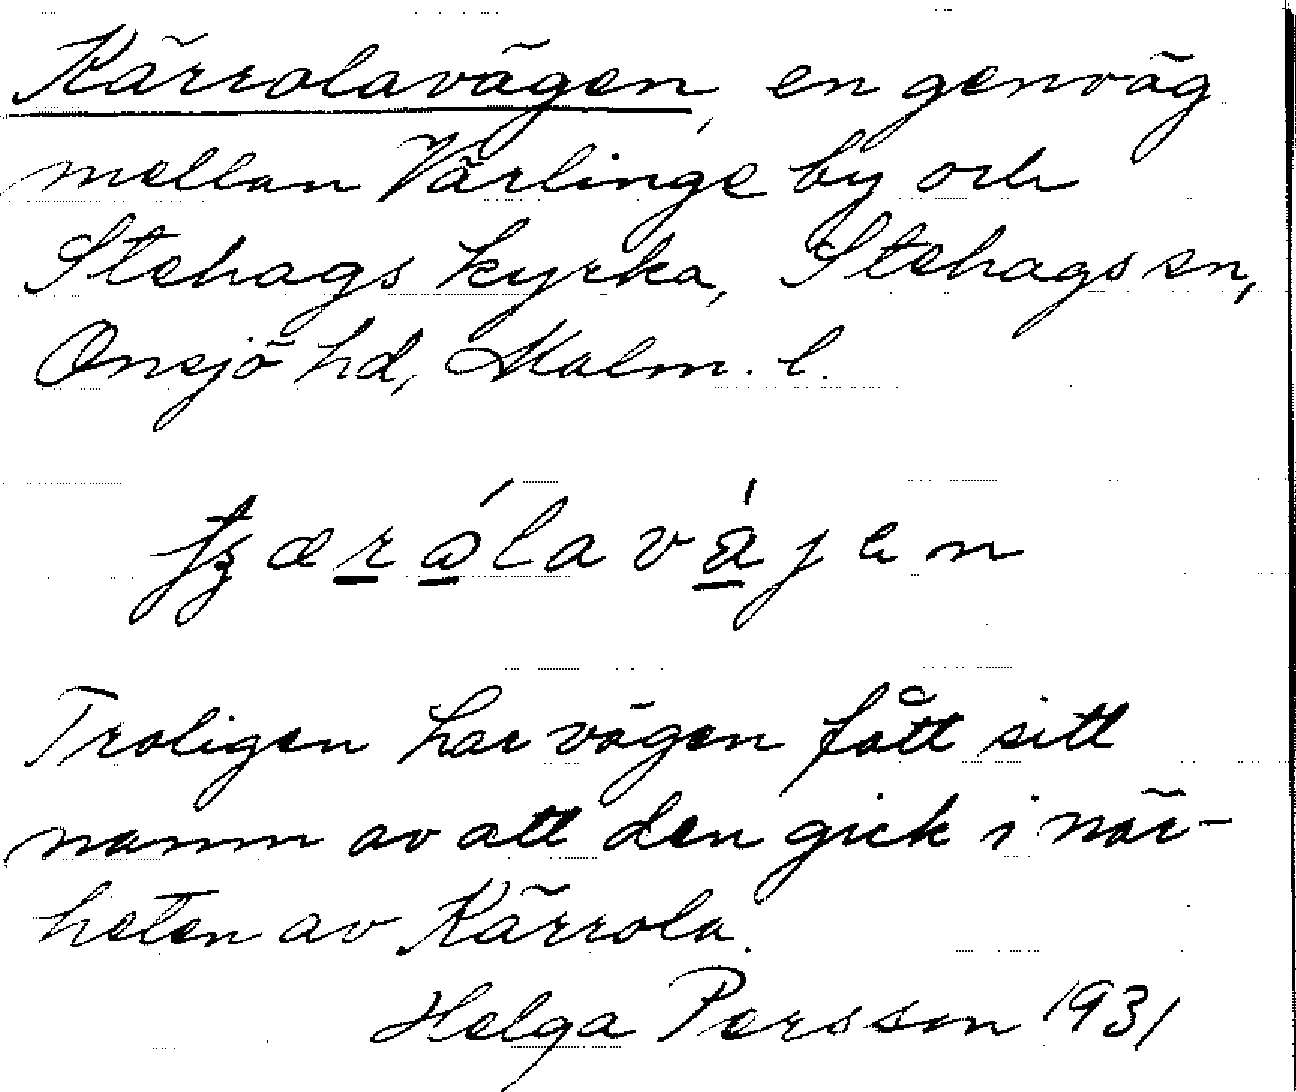 Kärrolavägen, en genväg
mellan Värlinge by och
Stehags kyrka, Stehags sn,
Onsjö hd, Malm. l.
Troligen har vägen fått sitt
namn av att den gick i när-
heten av Kärrola.
Helga Persson 1931